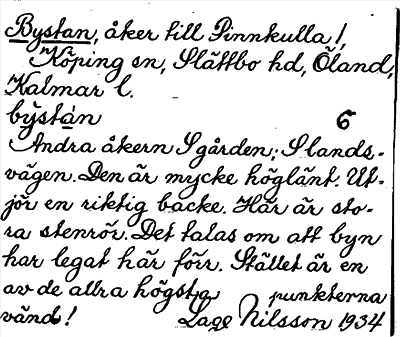 Bystan, åker till Pinnkulla 1,
Köping sn, Slättbo hd, Öland,
Kalmar l.
bỳstan 6
Andra åkern S gården; S lands-
vägen. Den är mycke höglänt. Ut-
jör en riktig backe. Här är sto-
ra stenrör. Det talas om att byn
har legat här förr. Stället är en
av de allra högsta punkterna
vänd! Lage Nilsson 1934